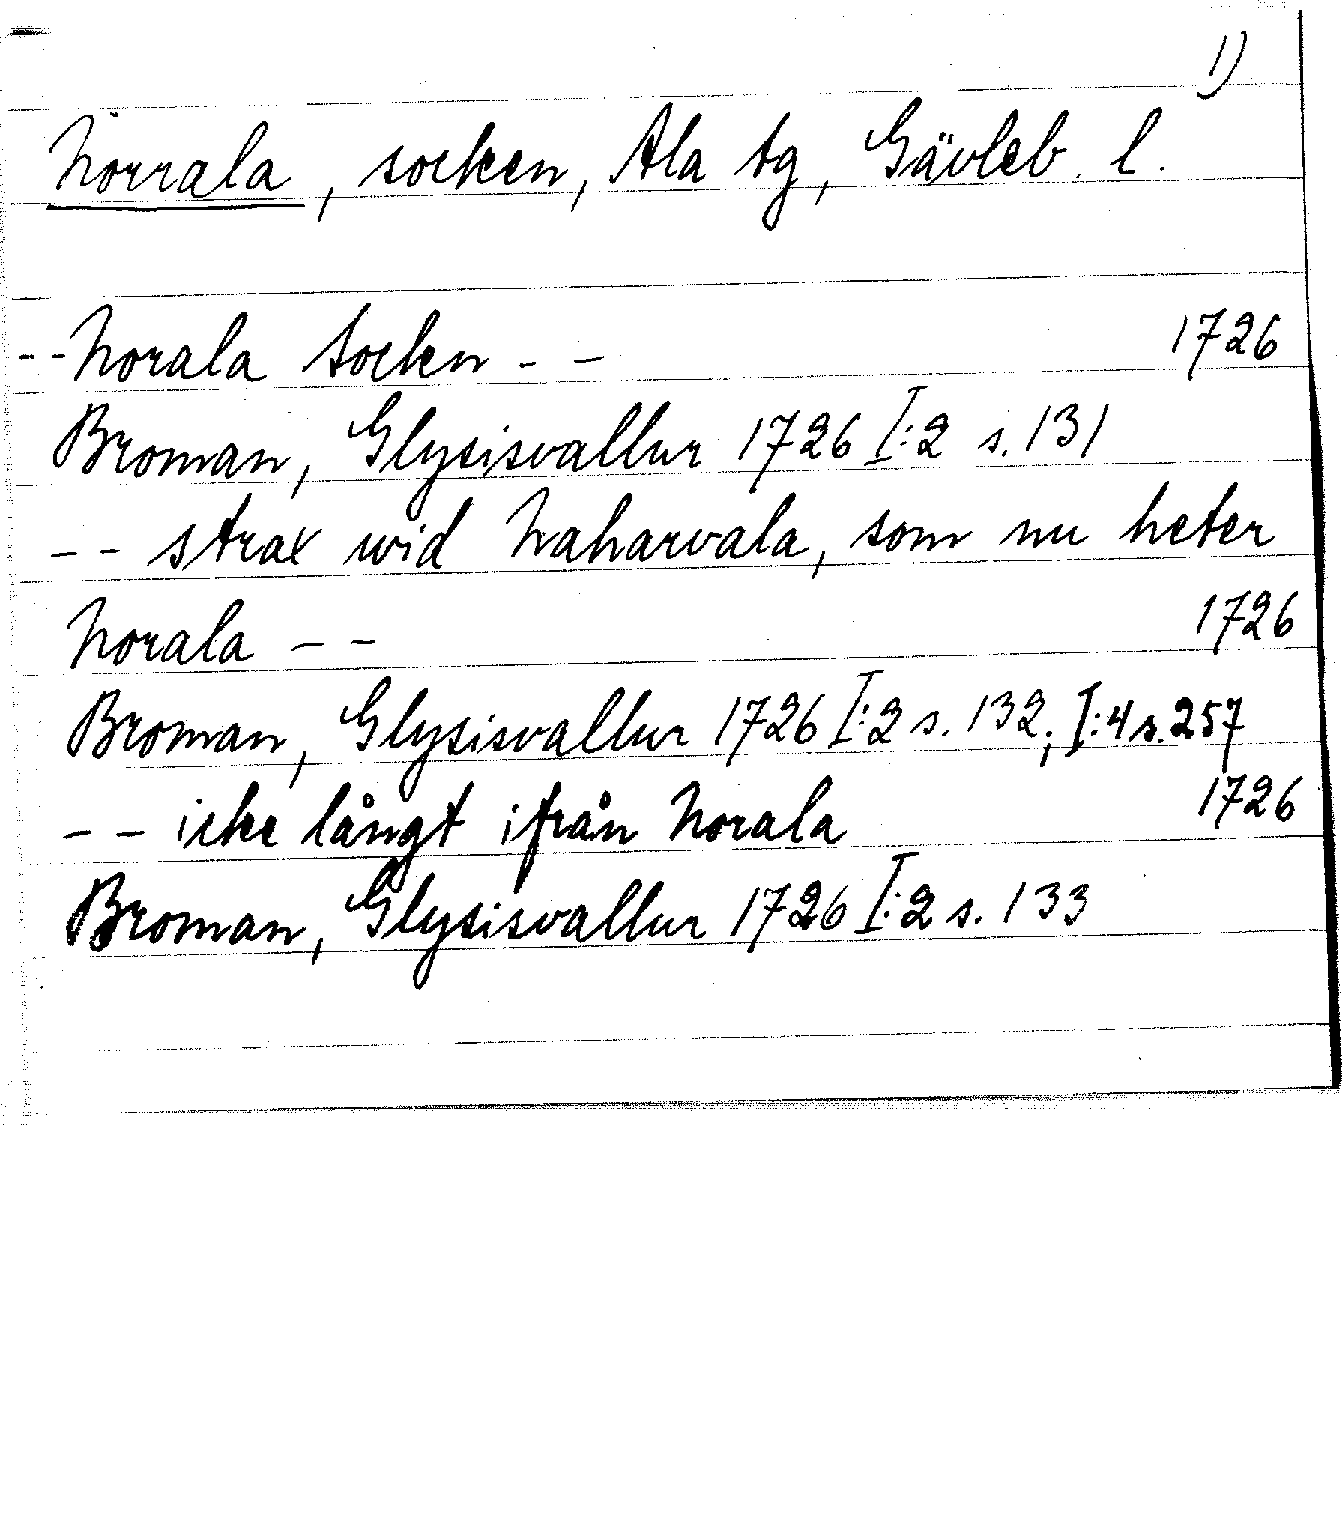 1)
Norrala, socken, Ala tg, Gävleb. l.
-- Norala Socken -- 1726
Broman, Glysisvallur 1726 I:2 s. 131
-- strax wid Naharvala, som nu heter
Norala -- 1726
Broman, Glysisvallur 1726 I:2 s. 132; I:4 s. 257
-- icke långt ifrån Norala 1726
Broman, Glysisvallur 1726 I:2 s. 133